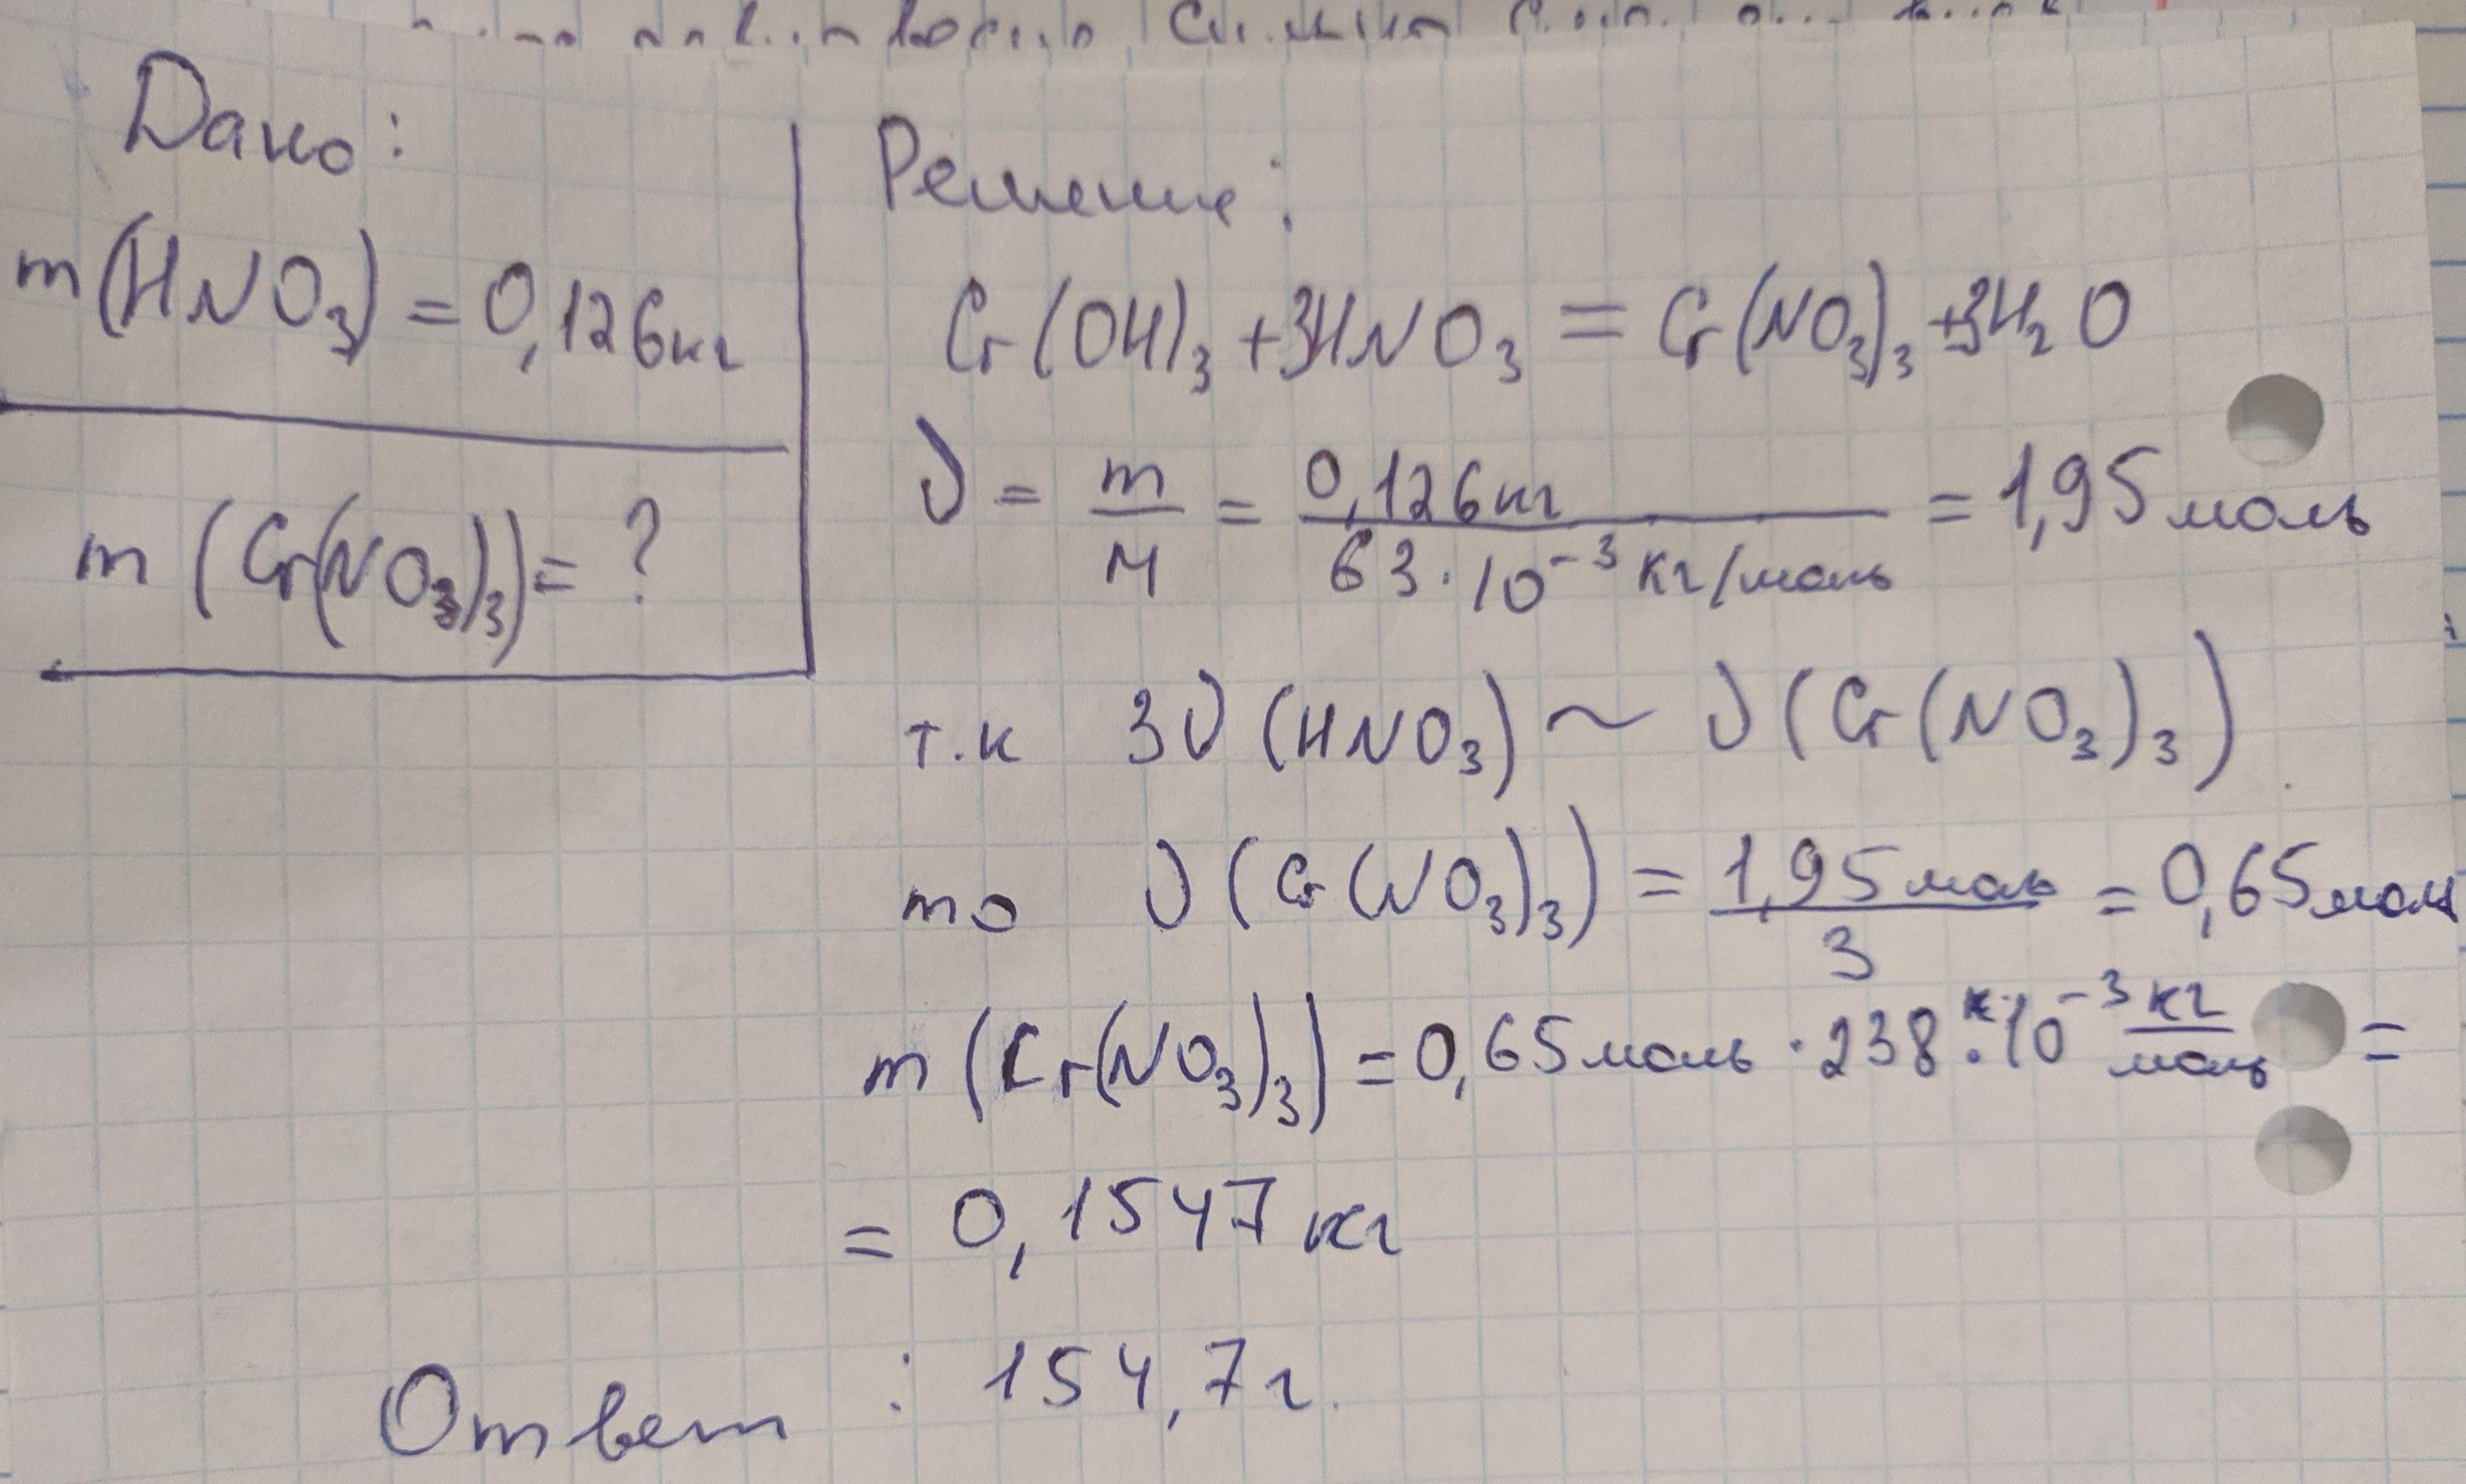 Дано:
m(HNO₃) = 0,126кг
m(Cr(NO₃)₃) = ?
Решение:
Cr(OH)₃ + 3HNO₃ = Cr(NO₃)₃ + 3H₂O
ν = m/M = 0,126кг / 63·10⁻³ кг/моль = 1,95 моль
т.к 3ν(HNO₃) ~ ν(Cr(NO₃)₃)
то ν(Cr(NO₃)₃) = 1,95 моль / 3 = 0,65 моль
m(Cr(NO₃)₃) = 0,65 моль · 238 · 10⁻³ кг/моль =
= 0,1547 кг
Ответ : 154,7 г.